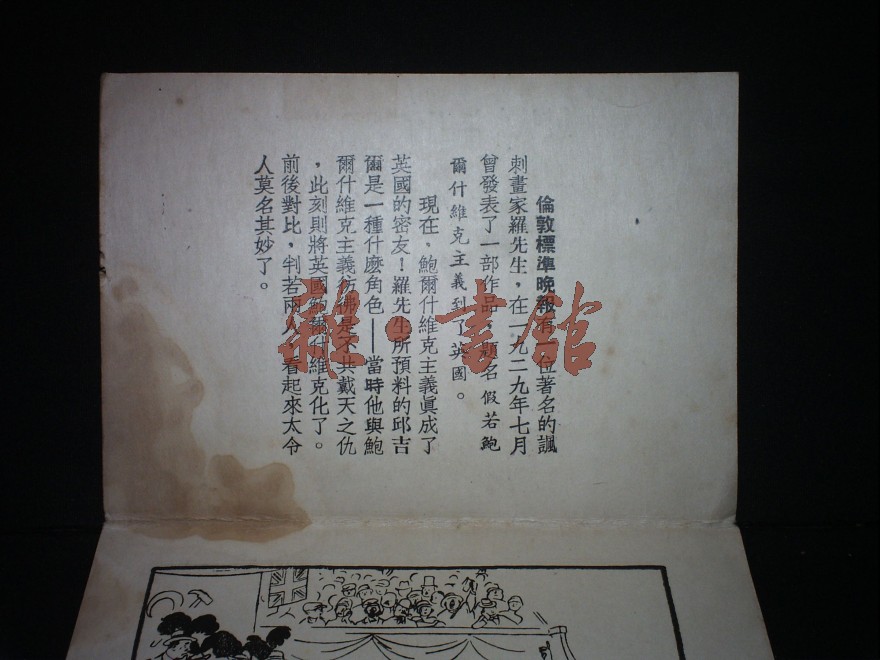 倫敦標準晚報有一位著名的諷
刺畫家羅先生，在一九二九年七月
曾發表了一部作品，題名假若鮑
爾什維克主義到了英國。
現在，鮑爾什維克主義眞成了
英國的密友！羅先生所預料的邱吉
爾是一種什麽角色——當時他與鮑
爾什維克主義彷彿是不共戴天之仇
，此刻則將英國鮑爾什維克化了。
前後對比，判若兩人，看起來太令
人莫名其妙了。
雜·書館